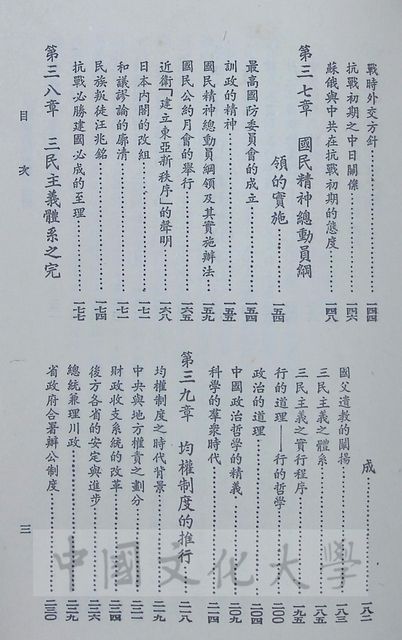 戰時外交方針…………一四四
抗戰初期之中日關係…………一四六
蘇俄與中共在抗戰初期的態度…………一四八
第三七章　國民精神總動員綱
領的實施…………一五四
最高國防委員會的成立…………一五四
訓政的精神…………一五五
國民精神總動員綱領及其實施辦法…………一五九
國民公約月會的舉行…………一六五
近衛「建立東亞新秩序」的聲明…………一六八
日本內閣的改組…………一七一
和議謬論的廓清…………一七二
民族叛徒汪兆銘…………一七四
抗戰必勝建國必成的至理…………一七七
第三八章　三民主義體系之完
成…………一八二
國父遺教的闡揚…………一八三
三民主義之體系…………一八五
三民主義之實行程序…………一九五
行的道理——行的哲學…………二〇〇
政治的道理…………二〇四
中國政治哲學的精義…………二〇九
科學的羣衆時代…………二一四
第三九章　均權制度的推行…………二一八
均權制度之時代背景…………二一九
中央與地方權責之劃分…………二二一
財政收支系統的改革…………二二四
後方各省的安定與進步…………二二六
總統兼理川政…………二二九
省政府合署辦公制度…………二三〇
目次
三
中國文化大學